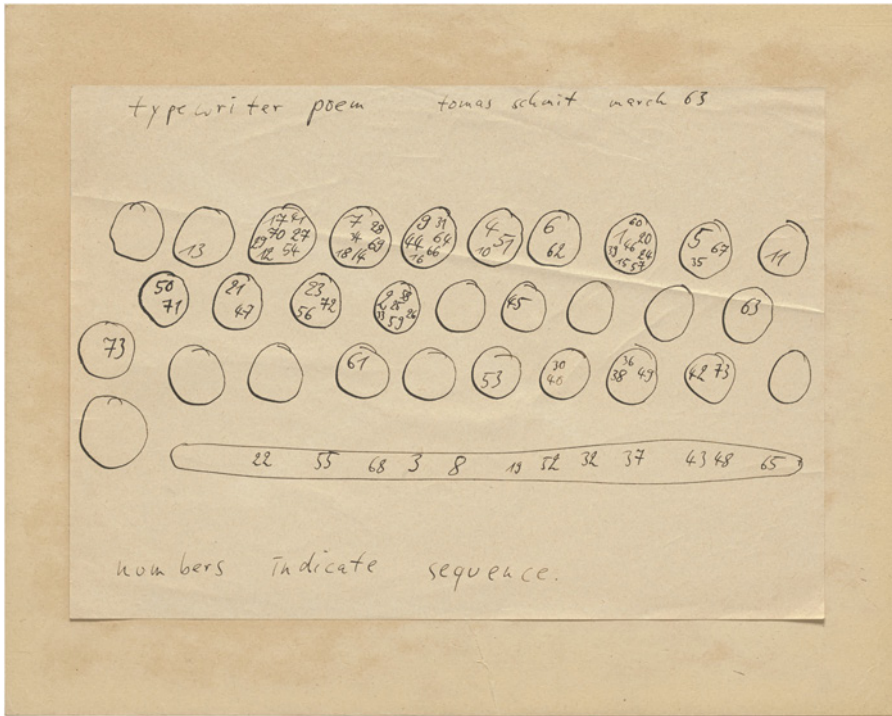 typewriter poem tomas schmit march 63
13
17 41
70 27
29
12 54
7 28
34 69
18 14
9 31
44 64
16 66
4
10 51
6
62
60
1 46 20
39 24
15 57
5 67
35
11
50
71
21
47
23
56 72
2 25
33 59 26
45
63
73
61
53
30
40
36
38 49
42 73
22 55 68 3 8 19 52 32 37 43 48 65
numbers indicate sequence.